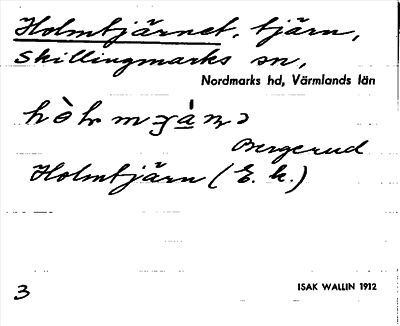 Holmtjärnet, tjärn,
Skillingmarks sn,
Nordmarks hd, Värmlands län
Bergerud
Holmtjärn (E. k.)
3
ISAK WALLIN 1912